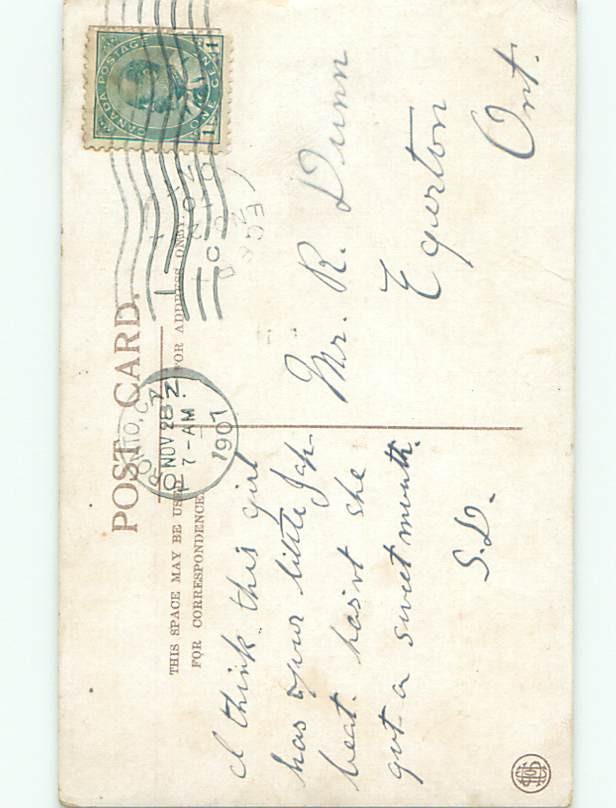 POST CARD.
THIS SPACE MAY BE USED
FOR CORRESPONDENCE
FOR ADDRESS ONLY.
CANADA POSTAGE
ONE CENT
1 1
NOV 28
7-AM
1907
I think this girl
has your little Jap
beat. hasn't she
got a sweet mouth.
S.D.
Mr. R. Dunn
Egerton
Ont.